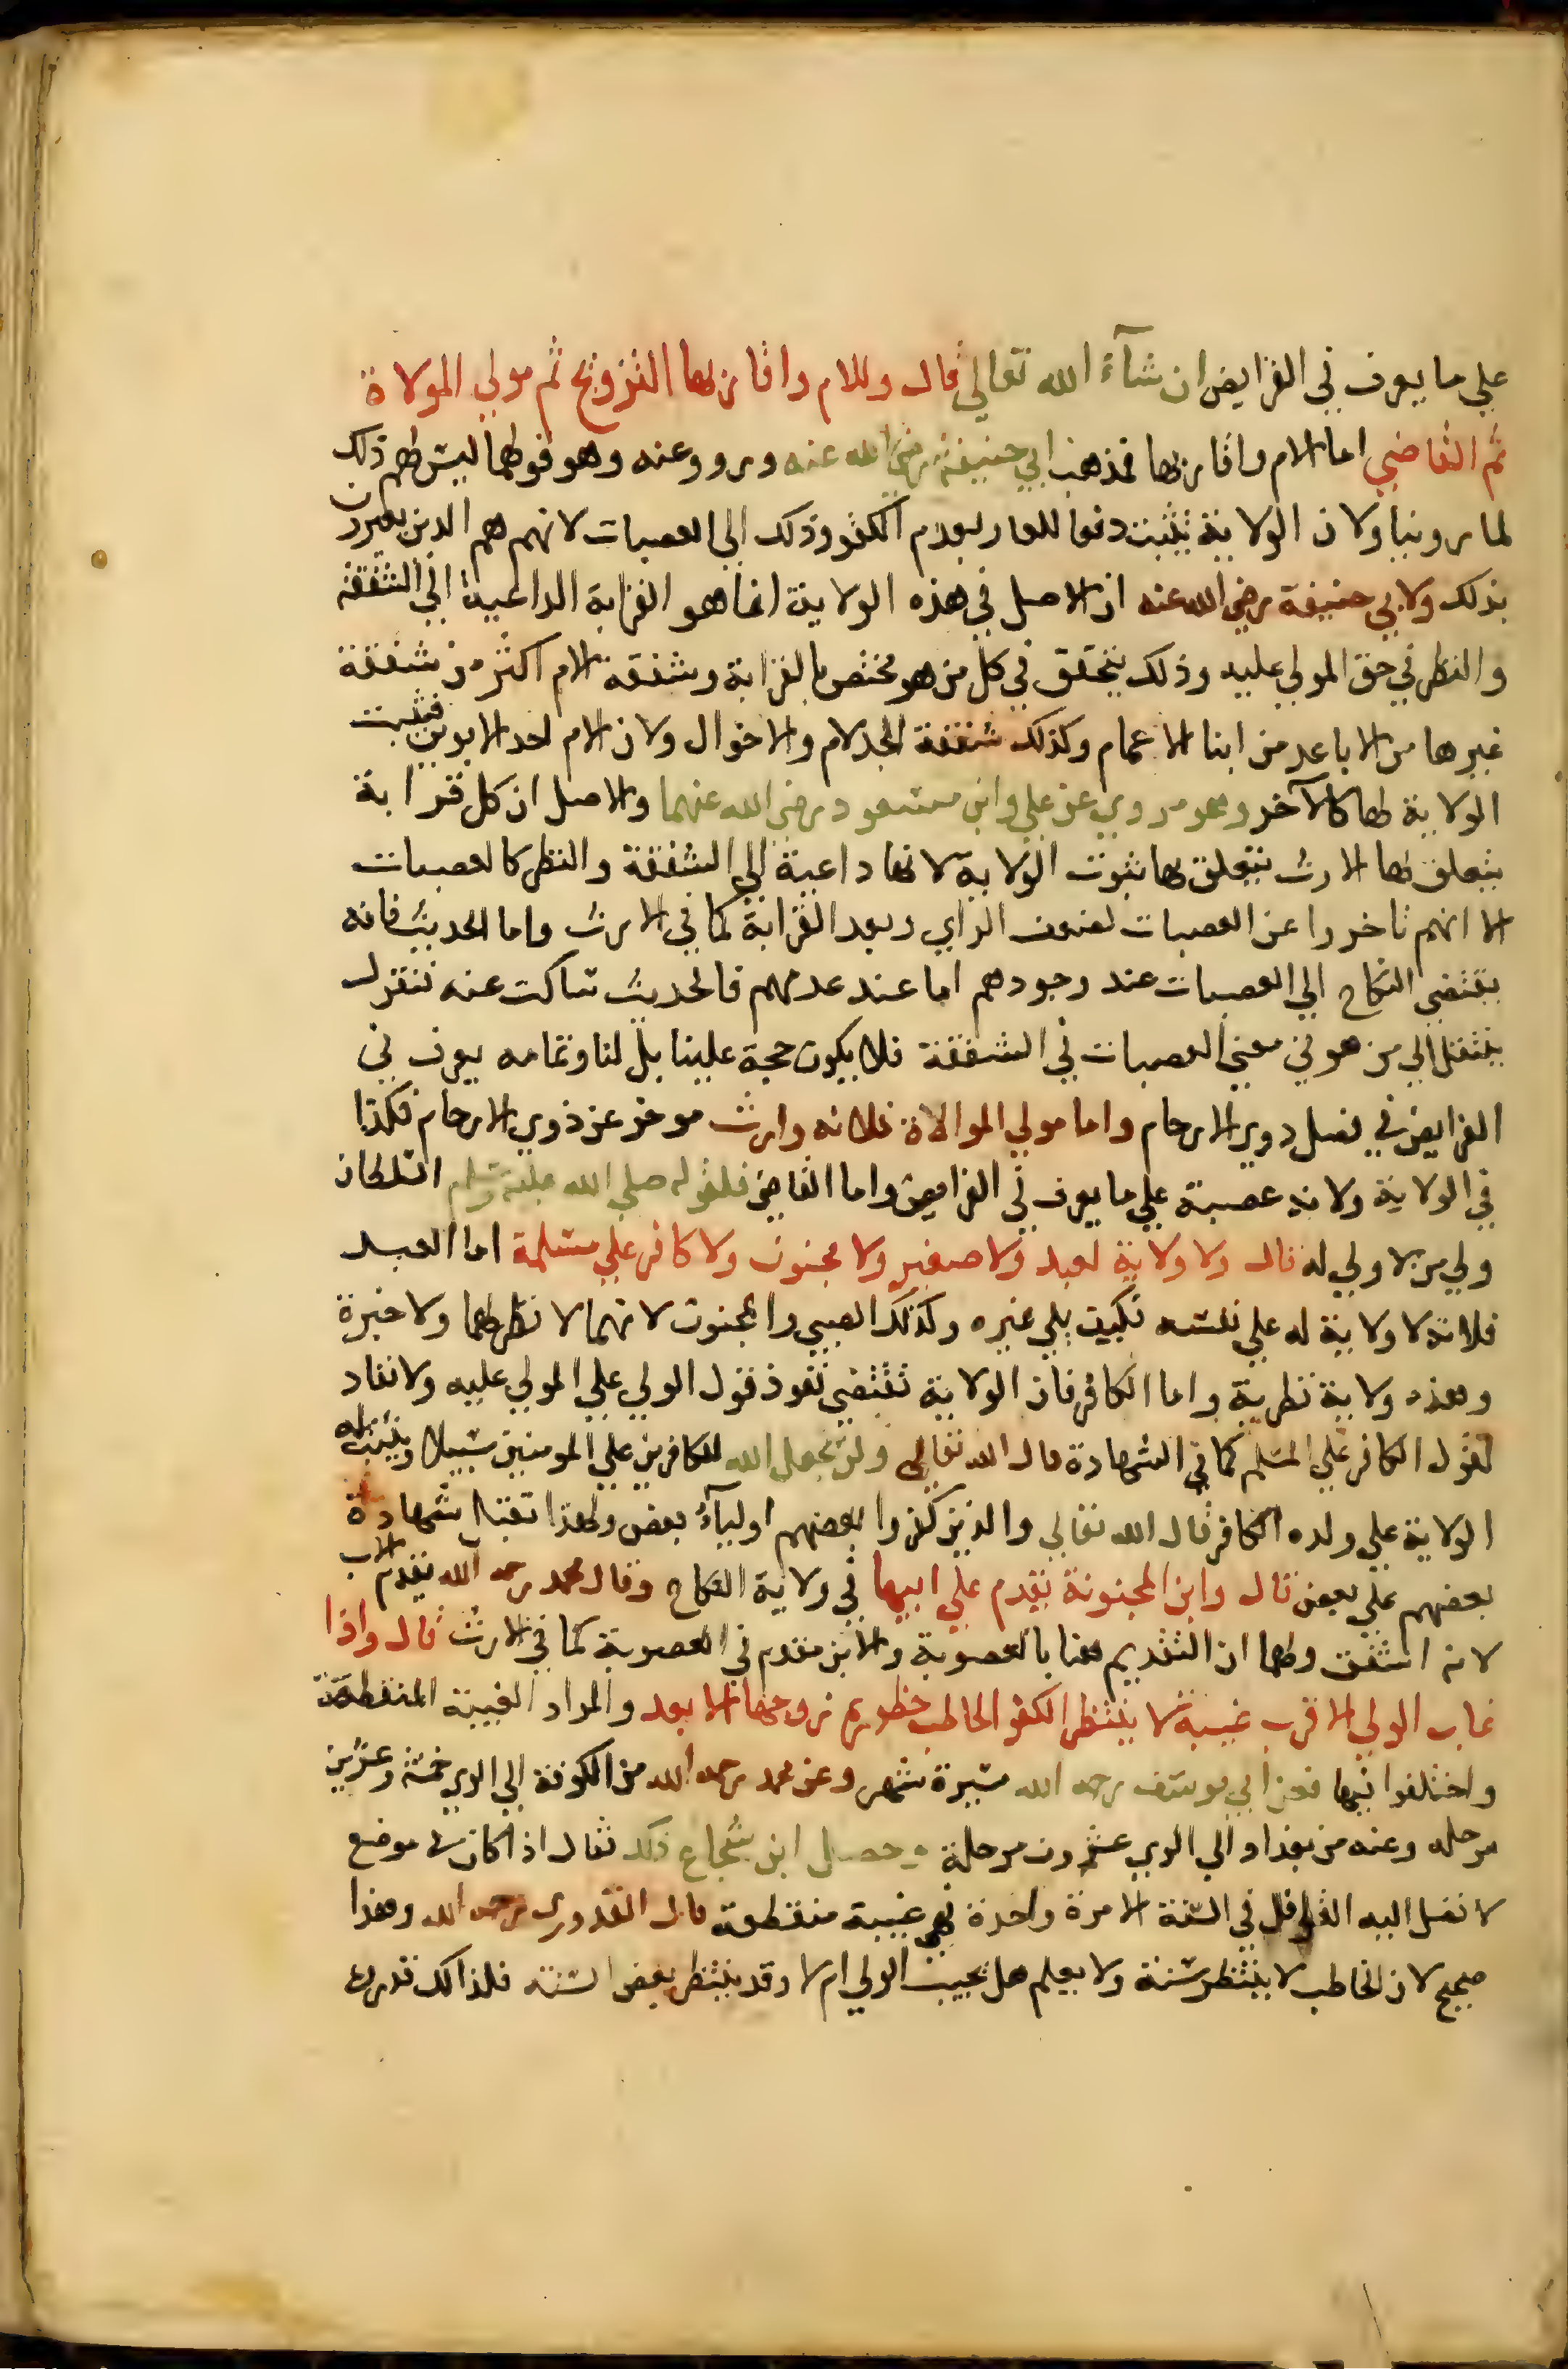 علي ما يعرف في الفرايض ان شآء الله تعالي قال وللام واقاربها التزويج ثم مولي المولاة
ثم القاضي اما الام واقاربها فمذهب ابي حنيفة رضي الله عنه وروو عنه وهو قولهما ليس لهم ذلك
لما روينا ولان الولاية تثبت دفعا للعار بعدم الكفو وذلك الي العصبات لانهم هم الذين يعيرون
بذلك ولابي حنيفة رضي الله عنه ان الاصل في هذه الولاية انما هو القرابة الداعية الي الشفقة
والنظر في حق المولي عليه وذلك يتحقق في كل من هو مختص بالقرابة وشفقة الام اكثر من شفقة
غيرها من الاباعد من ابنا الاعمام وكذلك شفقة الجد لام والاخوال ولان الام احد الابوين فيثبت
الولاية لها كالآخر وهو مروي عن علي وابن مسعود رضي الله عنهما والاصل ان كل قرابة
يتعلق بها الارث يتعلق بها ثبوت الولاية لانها داعية الي الشفقة والنظر كالعصبات
الا انهم تاخروا عن العصبات لضعف الراي وبعد القرابة كما في الارث واما الحديث فانه
يقتضي النكاح الي العصبات عند وجودهم اما عند عدمهم فالحديث ساكت عنه فنقول
ينتقل الي من هو في معني العصبات في الشفقة فلا يكون حجة علينا بل لنا وتمامه يعرف في
الفرايض في فصل ذوي الارحام واما مولي الموالاة فلانه وارث موخر عن ذوي الارحام فكذا
في الولاية ولانه عصبة علي ما يعرف في الفرايض واما القاضي فلقوله صلي الله عليه وسلم السلطان
ولي من لا ولي له قال ولا ولاية لعبد ولا صغير ولا مجنون ولا كافر علي مسلمة اما العبد
فلانه لا ولاية له علي نفسه فكيف يلي غيره وكذلك الصبي والمجنون لانهما لا نظر لهما ولا خبرة
وهذه ولاية نظرية واما الكافر فان الولاية تقتضي نفوذ قول الولي علي المولي عليه ولا نفاد
لقول الكافر علي المسلم كما في الشهادة قال الله تعالي ولن يجعل الله للكافرين علي المومنين سبيلا ويثبت له
الولاية علي ولده الكافر قال الله تعالي والذين كفروا بعضهم اوليآء بعض ولهذا تقبل شهادة
بعضهم علي بعض قال وابن المجنونة يقدم علي ابيها في ولاية النكاح وقال محمد رحمه الله يقدم الاب
لانه اشفق ولهما ان التقديم هنا بالعصوبة والابن مقدم في العصوبة كما في الارث قال واذا
غاب الولي الاقرب غيبة لا ينتظر الكفو الخاطب حضوره زوجها الابعد والمراد الغيبة المنقطعة
واختلفوا فيها فعن ابي يوسف رحمه الله مسيرة شهر وعن محمد رحمه الله من الكوفة الي الري خمسة وعشرين
مرحله وعنه من بغداد الي الري عشرون مرحلة وحصل ابن شجاع ذلك فقال اذا كان في موضع
لا تصل اليه القوافل في السنة الا مرة واحدة فهي غيبة منقطعة قال القدوري رحمه الله وهذا
صحيح لان الخاطب لا ينتظر سنة ولا يعلم هل يجيب الولي ام لا وقد ينتظر بعض السنة فلذالك قدره